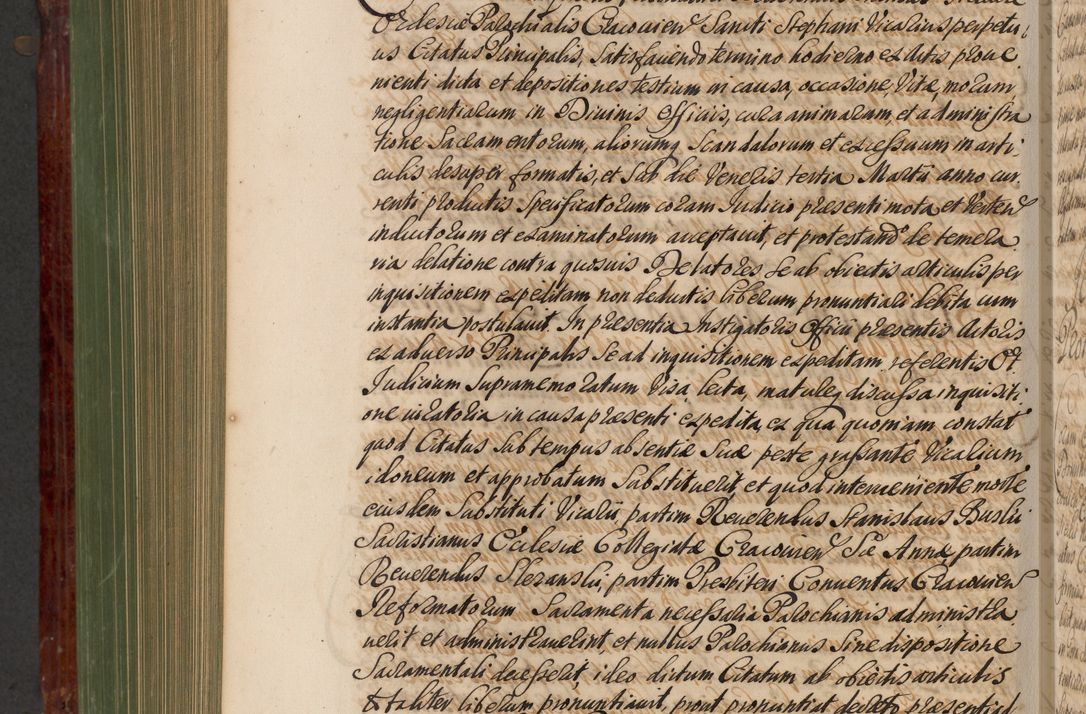 Ecclesiæ Parochialis Cracovien Sancti Stephani Vicarius perpetu
us Citatus Principalis, satisfaciendo termino hodierno ex Actis prove
nienti dicta et depositiones testium in causa, occasione Vitæ, morum
negligentiarum in Divinis Officiis, cura animarum, et administra
tione Sacramentorum, aliorumq Scandalorum et excessuum in arti
culis desuper formatis, et sub die Veneris tertia Martii anno cur
renti productis Specificatorum coram Iudicio præsenti mota et Verten
inductorum et examinatorum acceptavit, et protestando de temera
ria delatione contra quosvis Delatores Se ab obiectis articulis per
inquisitionem expeditam non deductis liberum pronuntiari debita cum
instantia postulavit. In præsentia Instigatoris Officii præsentis Actoris
ex adverso Principalis Se ad inquisitionem expeditam referentis Et
Iudicium Supramemoratum Visa, lecta, matureq discussa inquisiti
one iuratoria in causa præsenti expedita, ex qua quoniam constat
quod Citatus sub tempus absentiæ Suæ peste grassante Vicarium
idoneum et approbatum Substituerit, et quod interveniente morte
eiusdem Substituti Vicarii, partim Reverendus Stanislaus
Sacristianus Ecclesiæ Collegiatæ Cracovien Sæ Annæ, partim
Reverendus partim Presbiteri Conventus Cracovien
Reformatorum Sacramenta necessaria Parochianis administra
verit et administraverint, et nullus Parochianus Sine dispositione
Sacramentali decesserit, ideo dictum Citatum ab obiectis articulis
& taliter liberum pronuntiavit, prout pronuntiat decreto præsenti